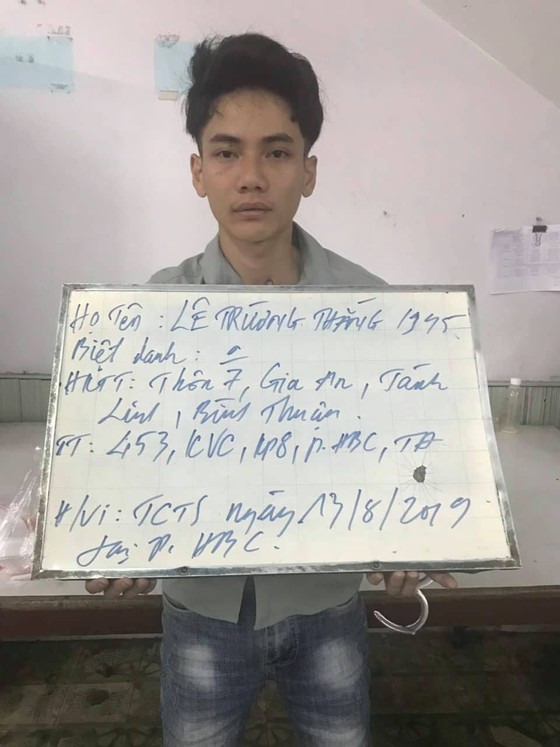 Họ Tên : LÊ TRƯỜNG THẮNG 1995
Biệt danh : 0
HKTT: Thôn 7, Gia An, Tánh
Linh, Bình Thuận.
TT: 453, KVC, KP8, P. HBC, TĐ
H/Vi: TCTS ngày 13/8/2019
tại P. HBC.